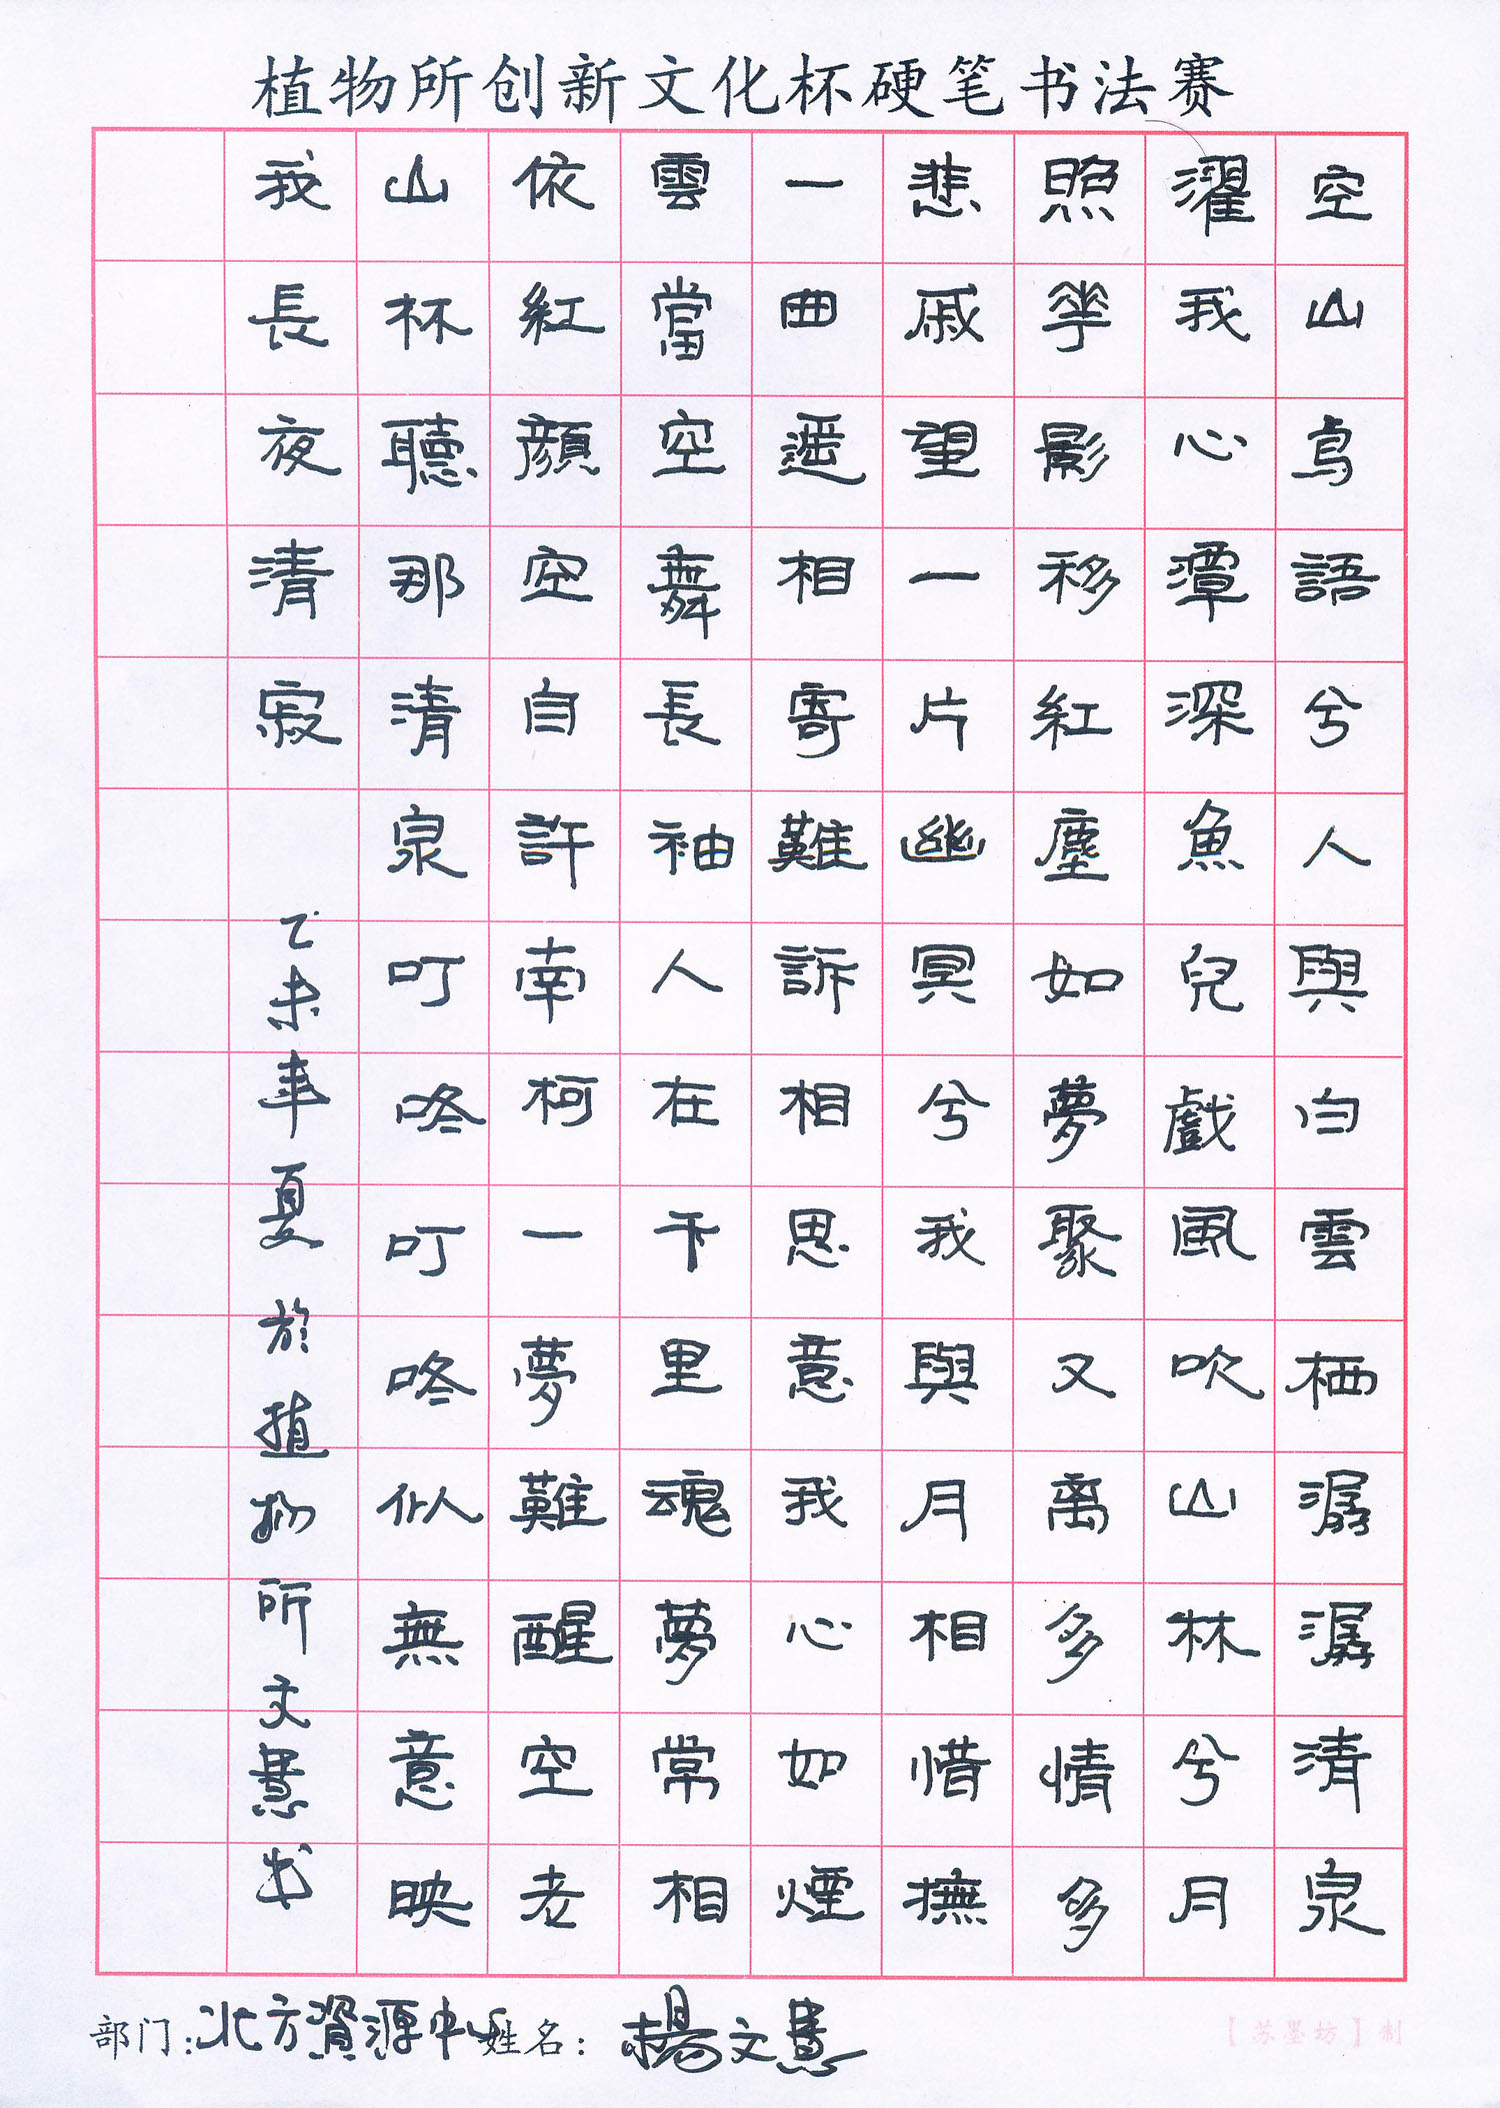 植物所创新文化杯硬笔书法赛
空山鸟語兮人與白雲栖潺潺清泉
濯我心潭深魚兒戲風吹山林兮月
照華影移紅塵如夢聚又离多情多
悲戚望一片幽冥兮我與月相惜撫
一曲遥相寄難訴相思意我心如煙
雲當空舞長袖人在千里魂夢常相
依紅顏空自許南柯一夢難醒空老
山杯聽那清泉叮咚叮咚似無意映
我長夜清寂 乙未年夏於植物所文慧书
部门：北方資源中心 姓名：楊文慧
【苏墨坊】制